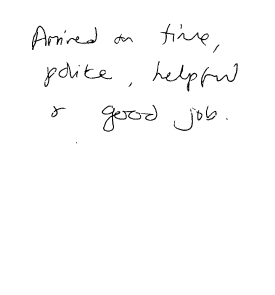 Arrived on time,
polite, helpful
& good job.